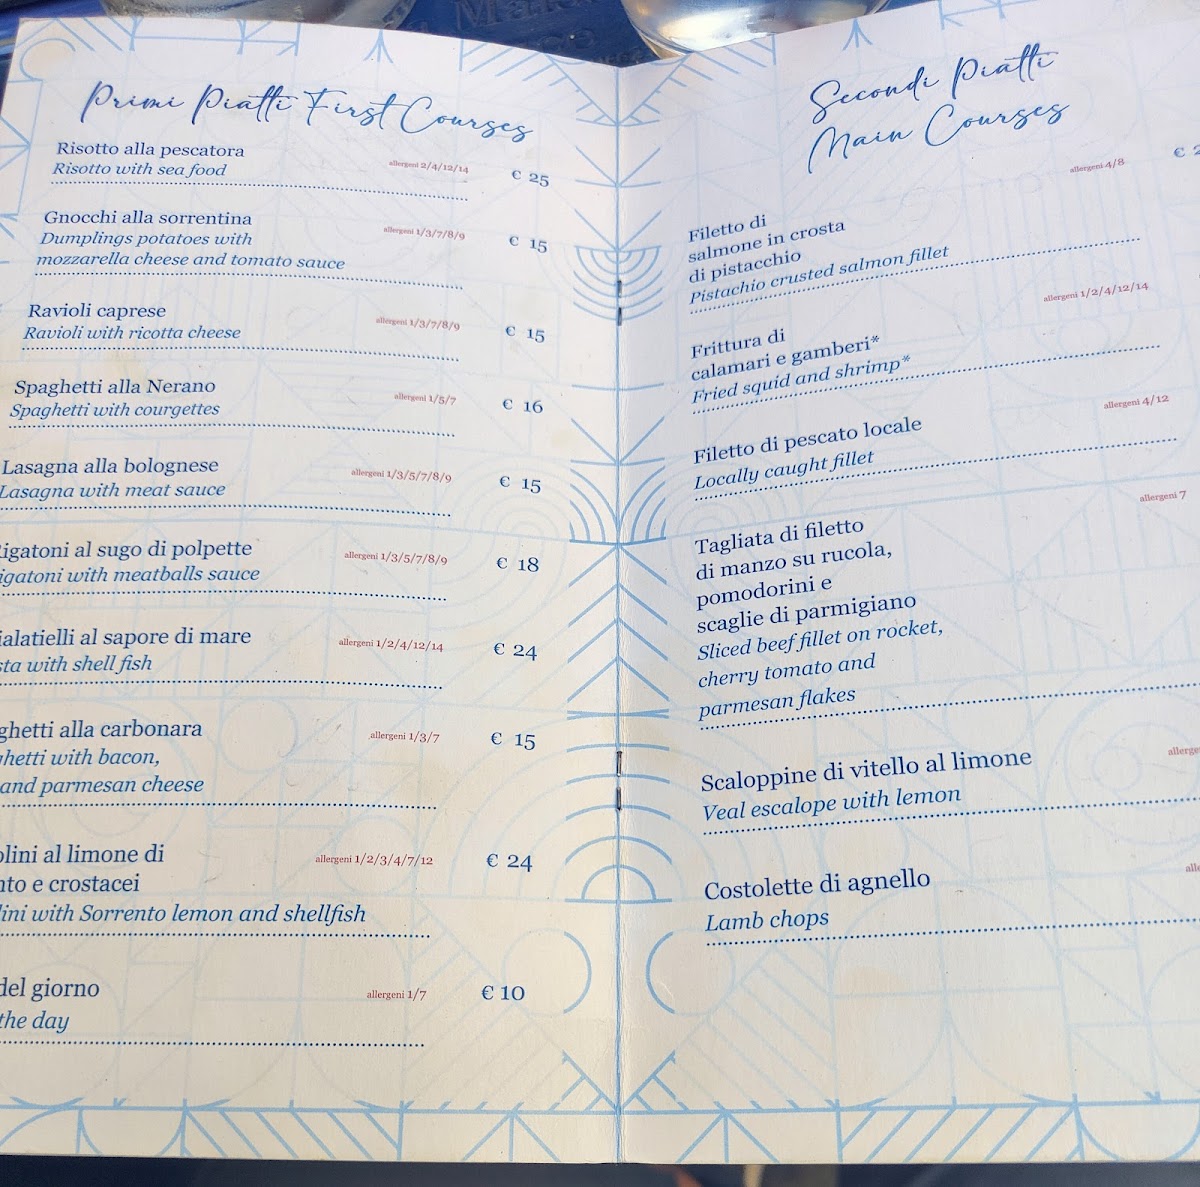 Primi Piatti First Courses
Risotto alla pescatora
Risotto with sea food
allergeni 2/4/12/14
€ 25
Gnocchi alla sorrentina
Dumplings potatoes with
mozzarella cheese and tomato sauce
allergeni 1/3/7/8/9
€ 15
Ravioli caprese
Ravioli with ricotta cheese
allergeni 1/3/7/8/9
€ 15
Spaghetti alla Nerano
Spaghetti with courgettes
allergeni 1/5/7
€ 16
Lasagna alla bolognese
Lasagna with meat sauce
allergeni 1/3/5/7/8/9
€ 15
igatoni al sugo di polpette
igatoni with meatballs sauce
allergeni 1/3/5/7/8/9
€ 18
ialatielli al sapore di mare
sta with shell fish
allergeni 1/2/4/12/14
€ 24
ghetti alla carbonara
ghetti with bacon,
and parmesan cheese
allergeni 1/3/7
€ 15
olini al limone di
nto e crostacei
lini with Sorrento lemon and shellfish
allergeni 1/2/3/4/7/12
€ 24
del giorno
the day
allergeni 1/7
€ 10
Secondi Piatti
Main Courses
Filetto di
salmone in crosta
di pistacchio
Pistachio crusted salmon fillet
allergeni 4/8
€ 2
Frittura di
calamari e gamberi*
Fried squid and shrimp*
allergeni 1/2/4/12/14
Filetto di pescato locale
Locally caught fillet
allergeni 4/12
Tagliata di filetto
di manzo su rucola,
pomodorini e
scaglie di parmigiano
Sliced beef fillet on rocket,
cherry tomato and
parmesan flakes
allergeni 7
Scaloppine di vitello al limone
Veal escalope with lemon
allerge
Costolette di agnello
Lamb chops
alle